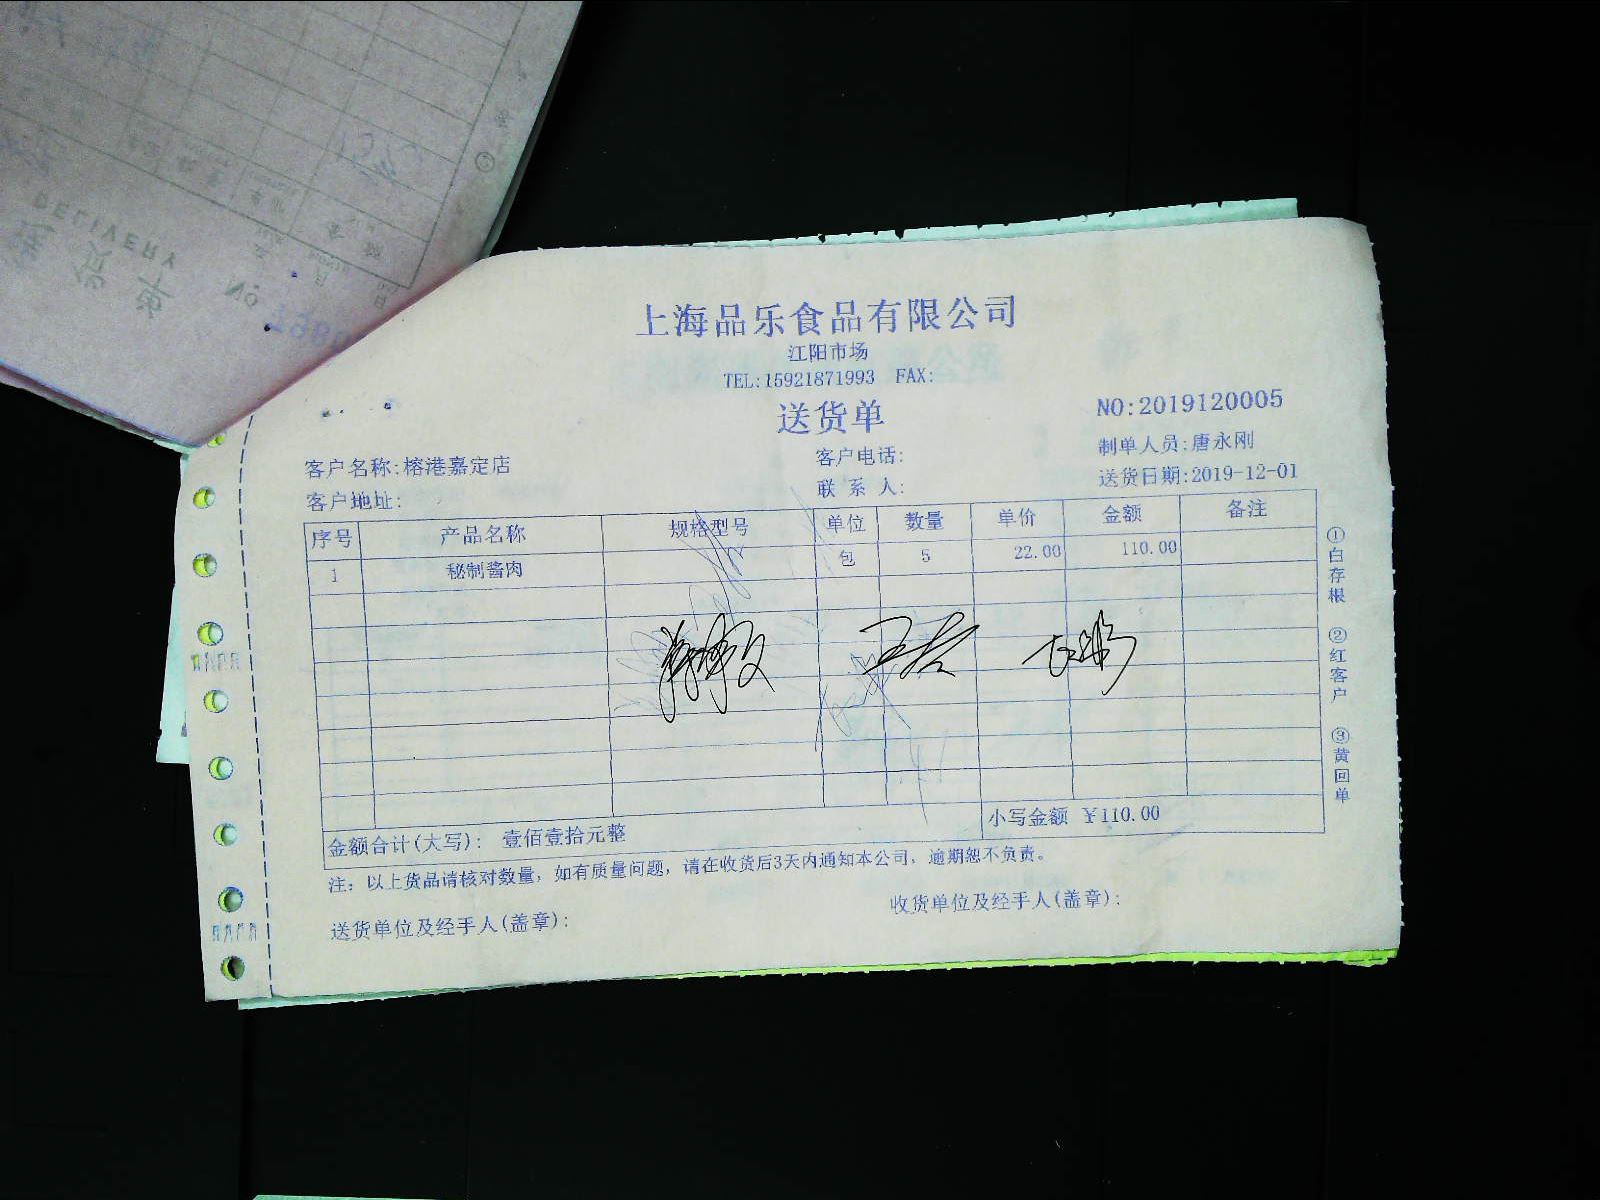 上海品乐食品有限公司
江阳市场
TEL:15921871993 FAX:
送货单
NO:2019120005
客户名称:榕港嘉定店 客户电话: 制单人员:唐永刚
客户地址: 联 系 人: 送货日期:2019-12-01
序号 产品名称 规格型号 单位 数量 单价 金额 备注
1 秘制酱肉 包 5 22.00 110.00
金额合计(大写): 壹佰壹拾元整 小写金额 ¥110.00
注: 以上货品请核对数量, 如有质量问题, 请在收货后3天内通知本公司, 逾期恕不负责。
送货单位及经手人(盖章): 收货单位及经手人(盖章):
①白存根 ②红客户 ③黄回单
DELIVERY
送货单